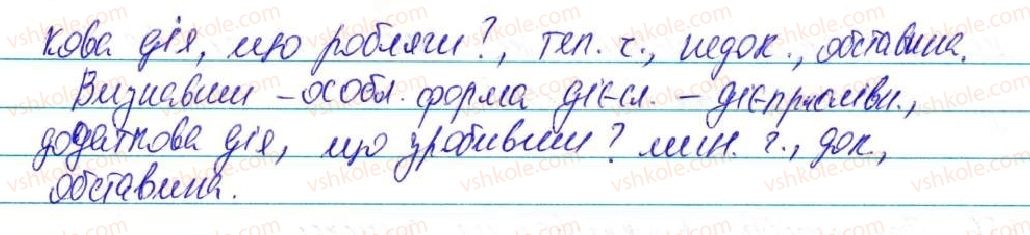 кова дія, що роблячи?, теп. ч., недок., обставина.
Визнавши – особл. форма дієсл. – дієприслівн.,
додаткова дія, що зробивши? мин. ч., док.,
обставина.